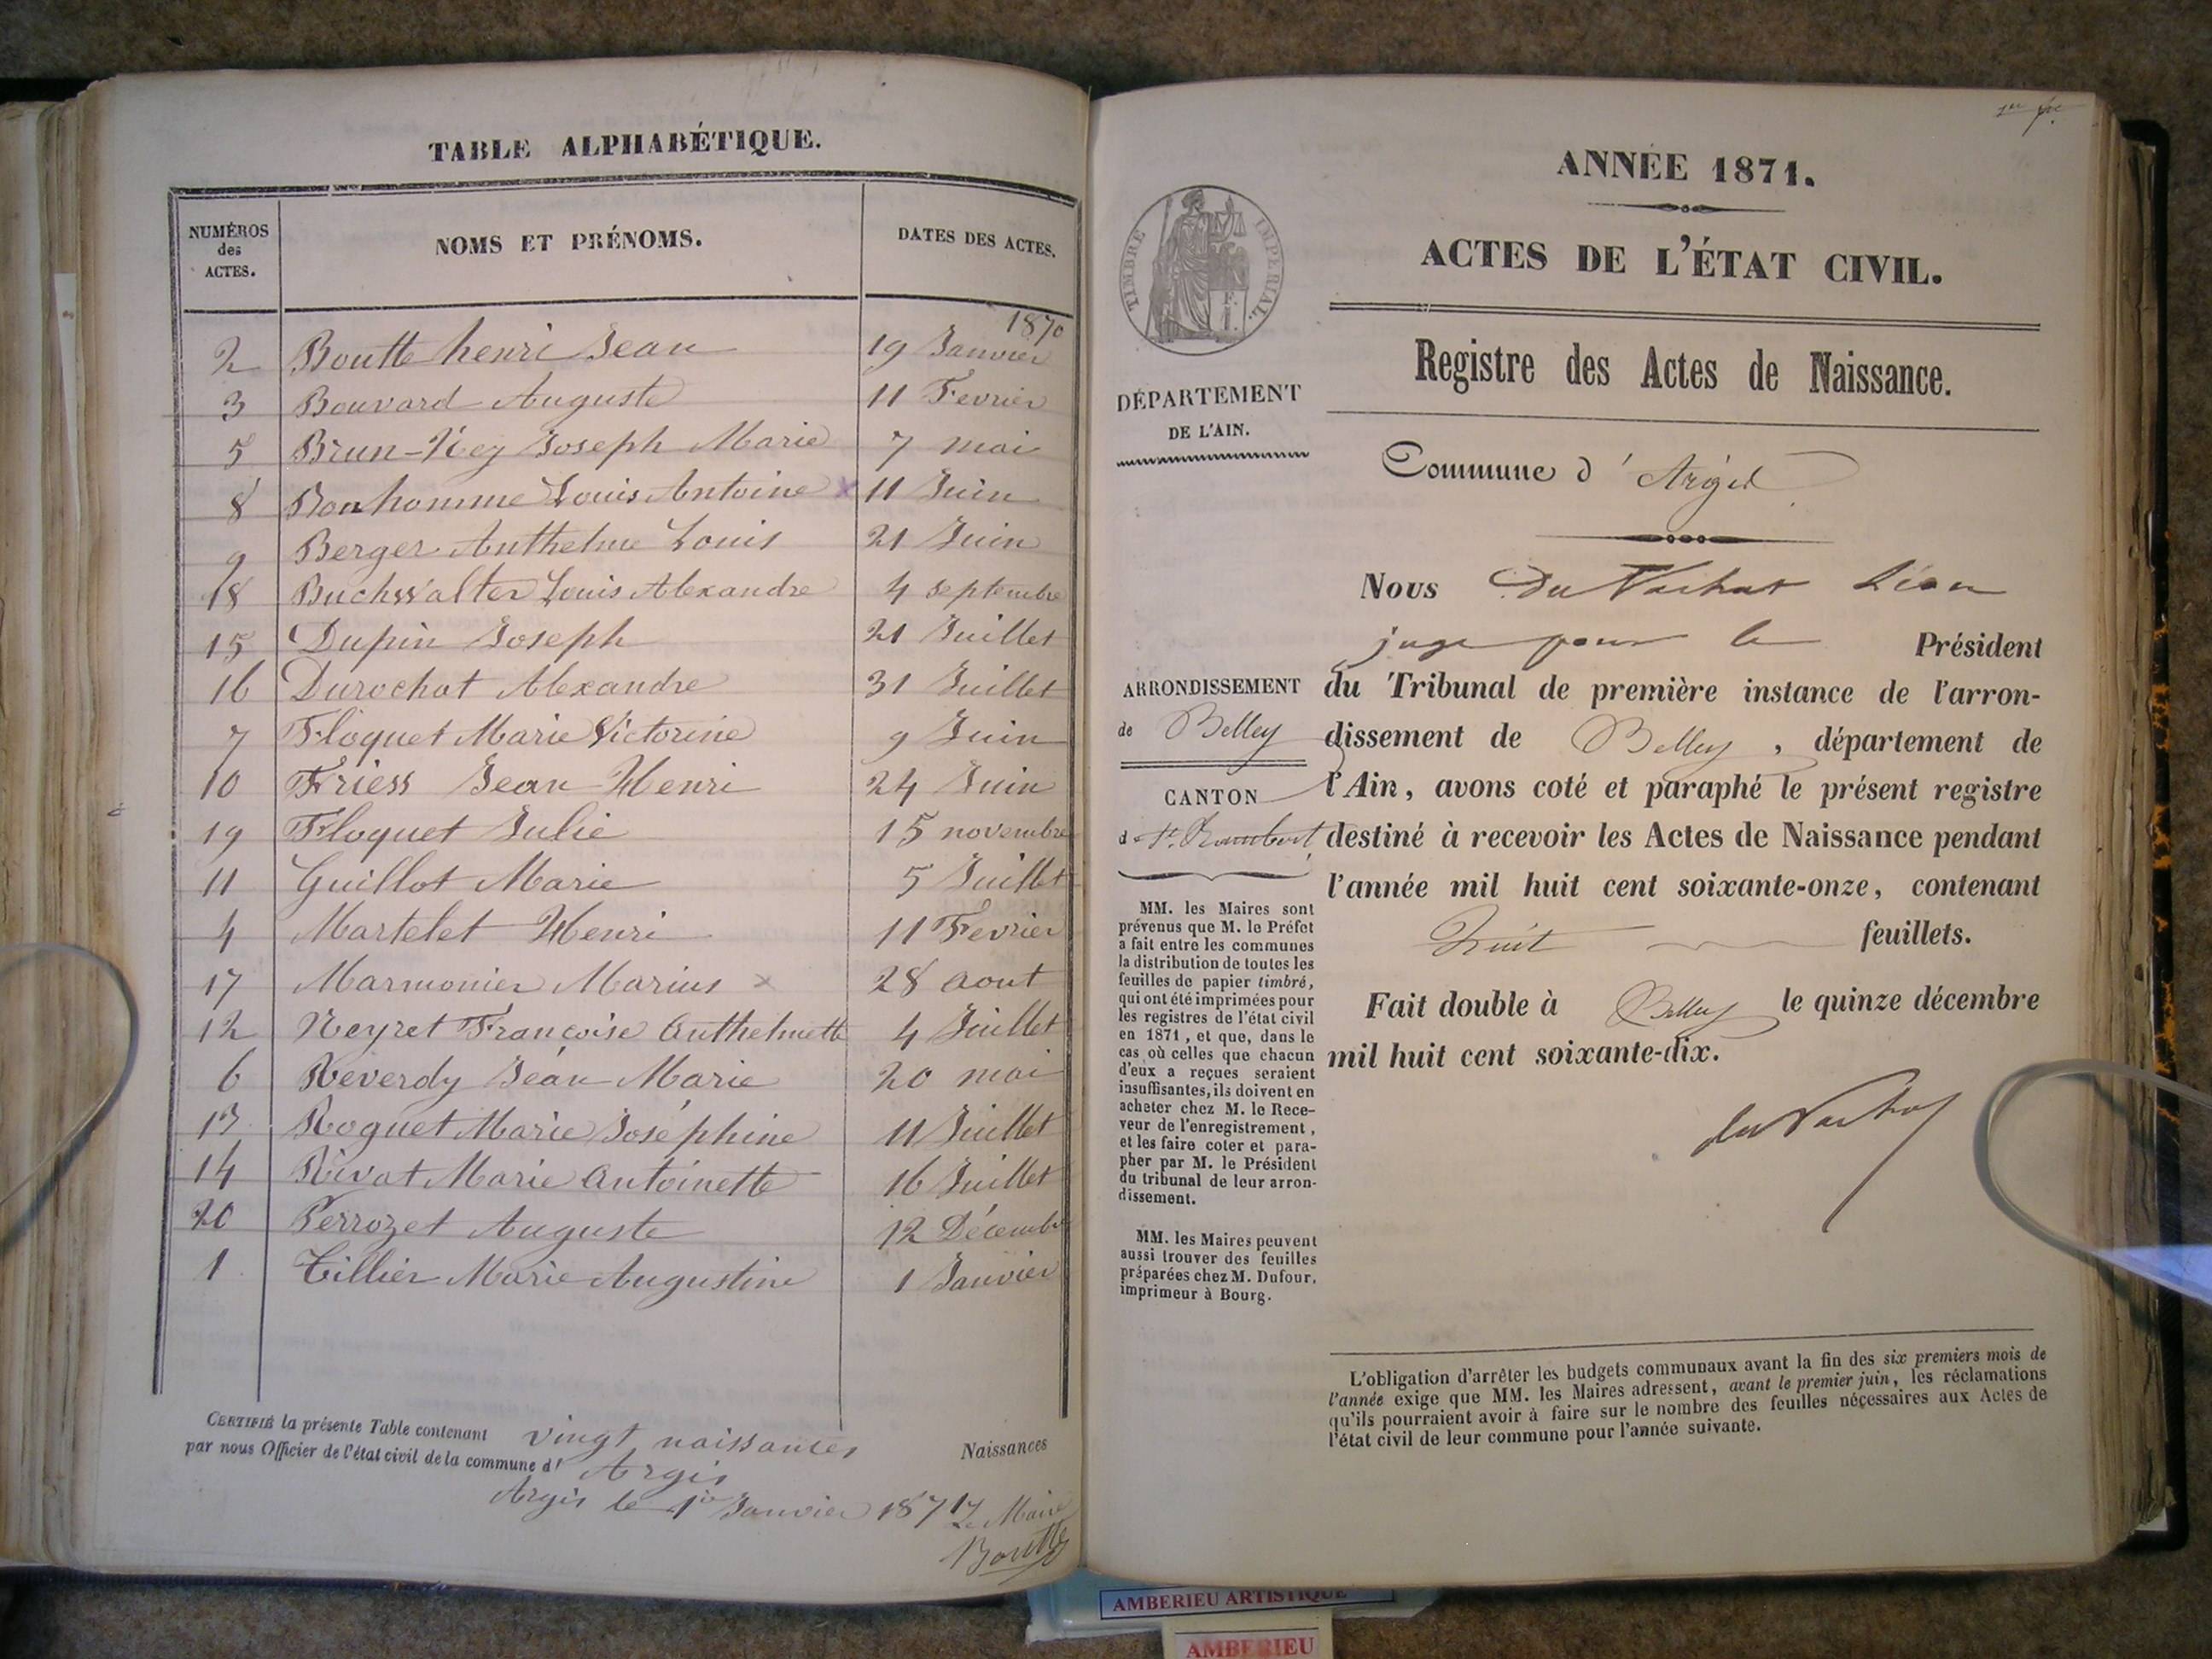 TABLE ALPHABÉTIQUE.
NUMÉROS des ACTES.
NOMS ET PRÉNOMS.
DATES DES ACTES.
1870
2 Boutte henri Jean 19 Janvier
3 Bouvard Auguste 11 Fevrier
5 Brun-Ney Joseph Marie 7 mai
8 Bonhomme Louis Antoine x 11 Juin
9 Berger Anthelme Louis 21 Juin
18 Buchwalter Louis Alexandre 4 septembre
15 Dupin Joseph 21 Juillet
16 Durochat Alexandre 31 Juillet
7 Floquet Marie Victorine 9 Juin
10 Friess Jean Henri 24 Juin
19 Floquet Julie 15 novembre
11 Guillot Marie 5 Juillet
4 Martelet Henri 11 Fevrier
17 Marmonier Marius x 28 aout
12 Neyret Françoise Anthelmette 4 Juillet
6 Reverdy Jean Marie 20 mai
13 Roguet Marie Joséphine 11 Juillet
14 Rivat Marie antoinette 16 Juillet
20 Perrozet Auguste 12 Décembre
1 Tillier Marie Augustine 1 Janvier
CERTIFIÉ la présente Table contenant vingt naissances Naissances
par nous Officier de l'état civil de la commune d' Argis
Argis le 1er Janvier 1871 Le Maire
Boutte
1er
ANNÉE 1871.
ACTES DE L'ÉTAT CIVIL.
Registre des Actes de Naissance.
Commune d' Argis
TIMBRE IMPÉRIAL.
DÉPARTEMENT
DE L'AIN.
ARRONDISSEMENT
de Belley
CANTON
de St. Rambert
MM. les Maires sont
prévenus que M. le Préfet
a fait entre les communes
la distribution de toutes les
feuilles de papier timbré,
qui ont été imprimées pour
les registres de l'état civil
en 1871, et que, dans le
cas où celles que chacun
d'eux a reçues seraient
insuffisantes, ils doivent en
acheter chez M. le Rece-
veur de l'enregistrement,
et les faire coter et para-
pher par M. le Président
du tribunal de leur arron-
dissement.
MM. les Maires peuvent
aussi trouver des feuilles
préparées chez M. Dufour,
imprimeur à Bourg.
Nous Du Vachat Léon
juge pour le Président
du Tribunal de première instance de l'arron-
dissement de Belley, département de
l'Ain, avons coté et paraphé le présent registre
destiné à recevoir les Actes de Naissance pendant
l'année mil huit cent soixante-onze, contenant
huit feuillets.
Fait double à Belley le quinze décembre
mil huit cent soixante-dix.
du Vachat
L'obligation d'arrêter les budgets communaux avant la fin des six premiers mois de
l'année exige que MM. les Maires adressent, avant le premier juin, les réclamations
qu'ils pourraient avoir à faire sur le nombre des feuilles nécessaires aux Actes de
l'état civil de leur commune pour l'année suivante.
AMBERIEU ARTISTIQUE
AMBERIEU